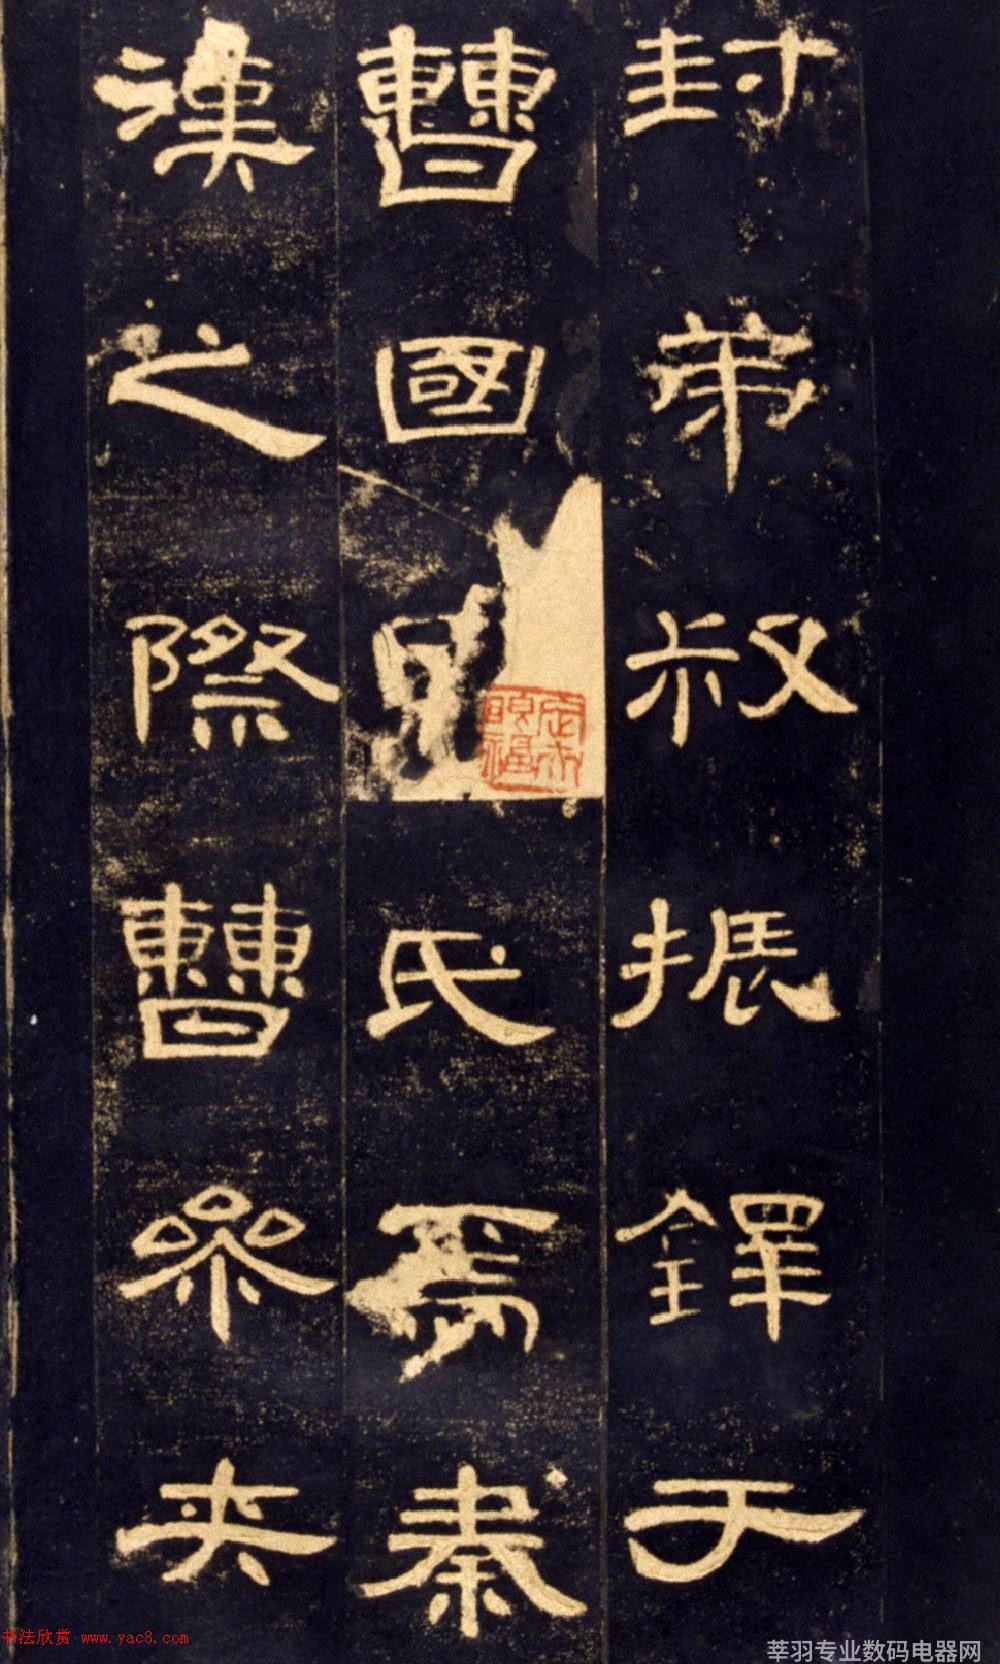 封弟叔振鐸于
曹國因氏焉秦
漢之際曹參夾
书法欣赏 www.yac8.com
莘羽专业数码电器网